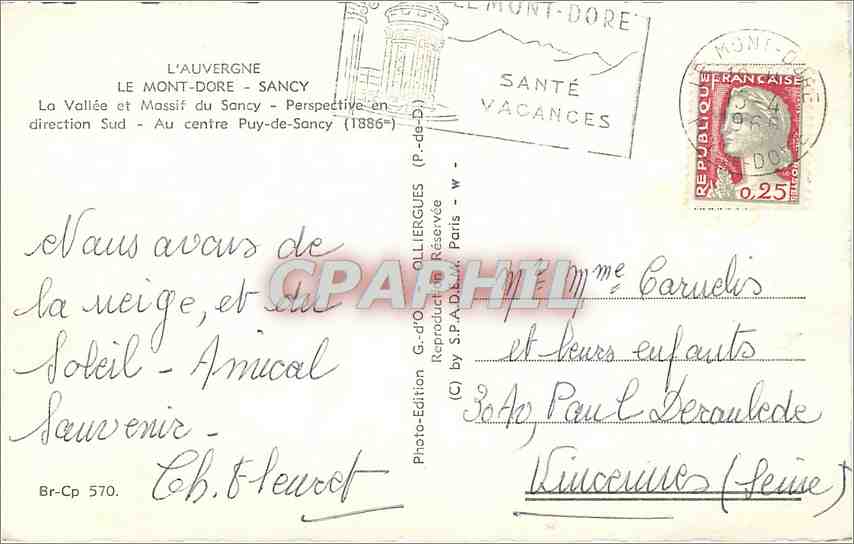 L'AUVERGNE
LE MONT-DORE - SANCY
La Vallée et Massif du Sancy - Perspective en
direction Sud - Au centre Puy-de-Sancy (1886m)
LE MONT-DORE
SANTÉ
VACANCES
MONT-DORE
REPUBLIQUE FRANÇAISE
0,25
Nous avons de
la neige, et du
Soleil - Amical
Souvenir -
Ch. Fleuret
Br-Cp 570.
Photo-Edition G.-d'O. OLLIERGUES (P.-de-D.)
Reproduction Réservée
(C) by S.P.A.D.E.M. Paris - w -
CPAPHIL
Mr Mme Carnelis
et leurs enfants
30 Av, Paul Deroulede
Vincennes (Seine)